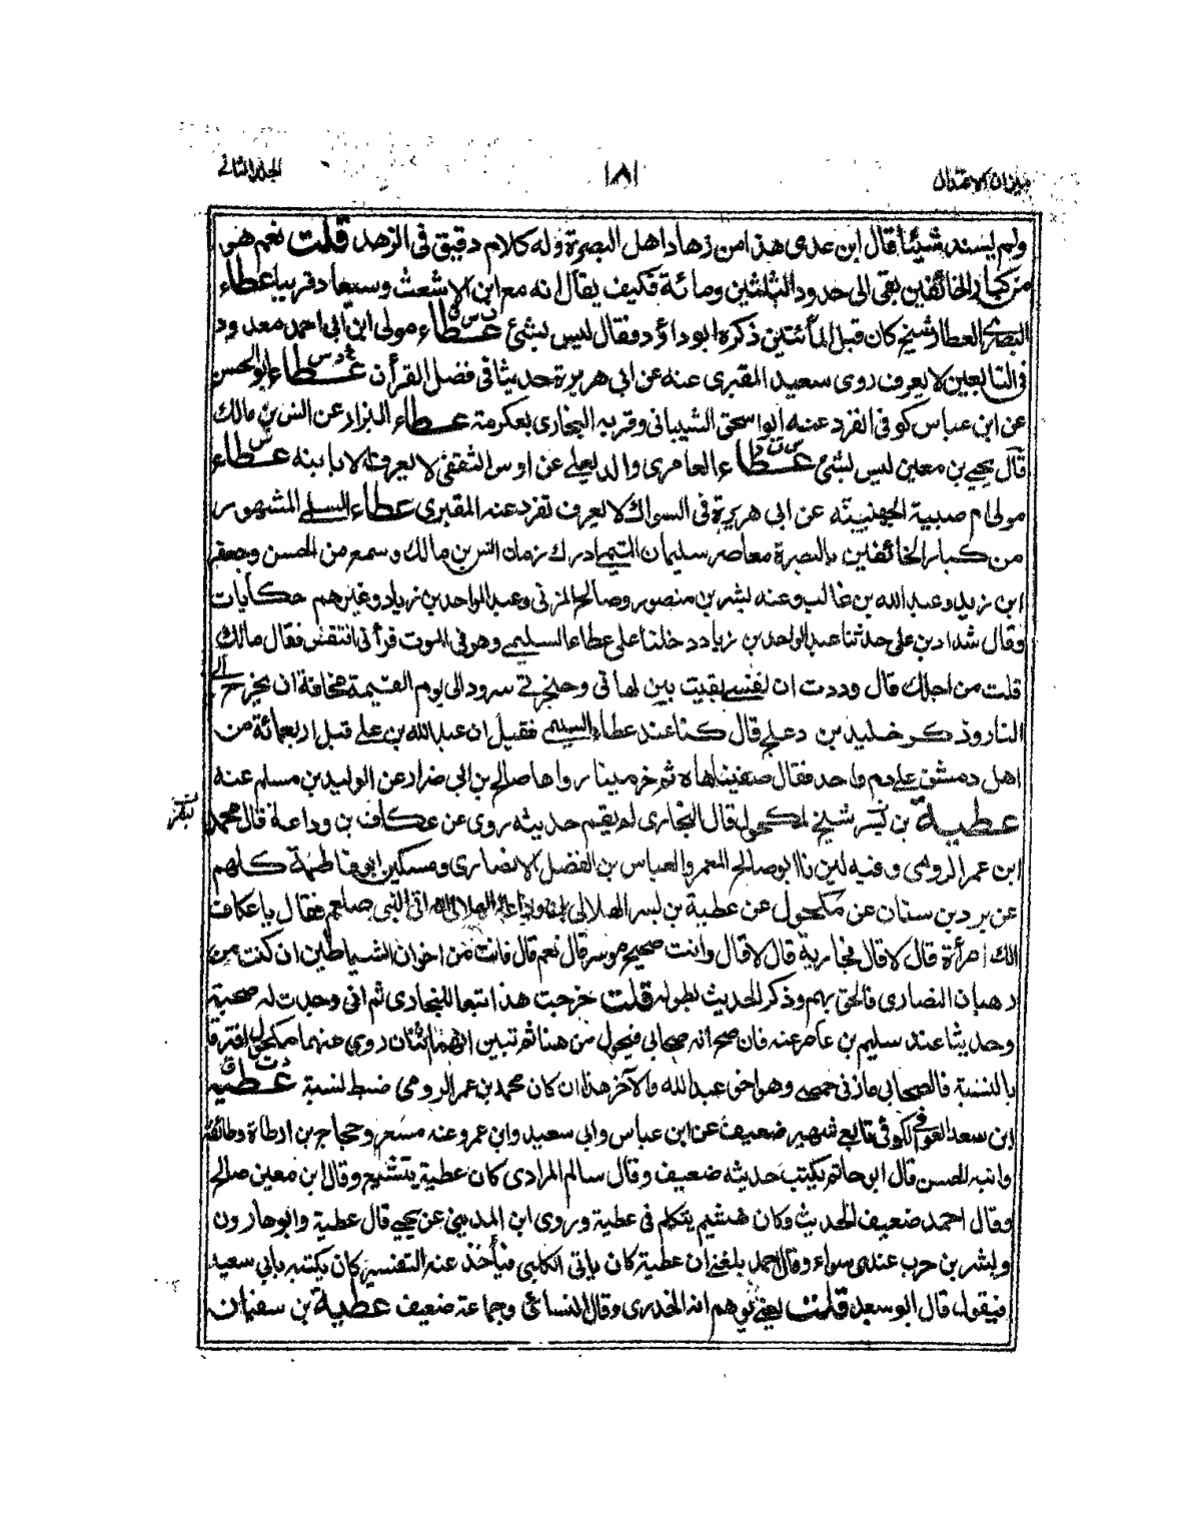 ميزان الاعتدال
١٨١
الجلد الثاني
ولم يسند شيئا قال ابن عدى هذا من زهاد اهل البصرة وله كلام دقيق فى الزهد قلت نعم هو
من كبار الخائفين بقى الى حدود الثلثين ومائة فكيف يقال انه مع ابن الاشعث وسيعاد قريبا عطاء
البصرى العطار شيخ كان قبل المأئتين ذكره ابو داؤد وفقال ليس بشئ عطاء مولى ابن ابى احمد معدود
فى التابعين لا يعرف روى سعيد المقبرى عنه عن ابى هريرة حديثا فى فضل القرأن عطاء ابو الحسن
عن ابن عباس كوفى انفرد عنه ابو اسحق الشيبانى وقربه البخارى بعكرمة عطاء البزاز عن انس بن مالك
قال يحيى بن معين ليس بشئ عطاء العامرى والد يعلى عن اوس الثقفى لا يعرف الا بابنه عطاء
مولى ام صبية الجهنيته عن ابى هريرة فى السواك لا يعرف تفرد عنه المقبرى عطاء السليمى المشهور
من كبار الخائفين بالبصرة معاصر سليمان التيمى ادرك زمان انس بن مالك وسمع من الحسن وجعفر
ابن زيد وعبد الله بن غالب وعنه بشر بن منصور وصالح المرى وعبد الواحد بن زياد وغيرهم حكايات
وقال شداد بن على حدثنا عبد الواحد بن زياد دخلنا على عطاء السليمى وهو فى الموت فرأنى اتنفس فقال مالك
قلت من اجلك قال وددت ان نفسى بقيت بين لهاتى وحنجرتى تردد الى يوم القيمة مخافة ان يخرج الى
النار وذكر خليد بن دعلج قال كنا عند عطاء السليمى فقيل ان عبد الله بن على قتل اربعمائة من
اهل دمشق على دم واحد فقال متنفسا هاه ثم خر ميتا رواها صالح بن ابى ضرار عن الوليد بن مسلم عنه
عطية بن بسر شيخ لمكحول قال البخارى لم يقم حديثه روى عن عكاف بن وداعة قال محمد
ابن عمر الرومى وفيه لين نا ابو صالح المعمر والعباس بن الفضل الانصارى ومسكين ابو فاطمة كلهم
عن برد بن سنان عن مكحول عن عطية بن بسر الهلالى بن وداعة الهلالى انه اتى النبى صلعم فقال يا عكاف
الك امرأة قال لا قال فجارية قال لا قال وانت صحيح موسر قال نعم قال فانت من اخوان الشياطين ان كنت من
رهبان النصارى فالحق بهم وذكر الحديث بطوله قلت خرجت هذا اتبعا للبخارى ثم انى وجدت له صحبة
وحديثا عند سليم بن عامر عنه فان صح انه صحابى فيحول من هنا ثم تبين انهما اثنان روى عنهما مكحول افترقا
بالنسبة فالصحابى مازنى حمصى وهو اخو عبد الله والآخر هذا ان كان محمد بن عمر الرومى ضبط نسبة عطية
ابن سعد العوفى الكوفى تابعى شهير ضعيف عن ابن عباس وابى سعيد وابن عمر وعنه مسعر وحجاج بن ارطاة وطائفة
وابنه الحسن قال ابن حاتم يكتب حديثه ضعيف وقال سالم المرادى كان عطية يتشيع وقال ابن معين صالح
وقال احمد ضعيف الحديث وكان هشيم يتكلم فى عطية وروى ابن المدينى عن يحيى قال عطية وابو هارون
وبشر بن حرب عندى سواء وقال احمد بلغنى ان عطية كان ياتى الكلبى فيأخذ عنه التفسير كان يكتنيه بابى سعيد
فيقول قال ابو سعيد قلت يعنى يوهم انه الخدرى وقال النسائى وجماعة ضعيف عطية بن سفيان